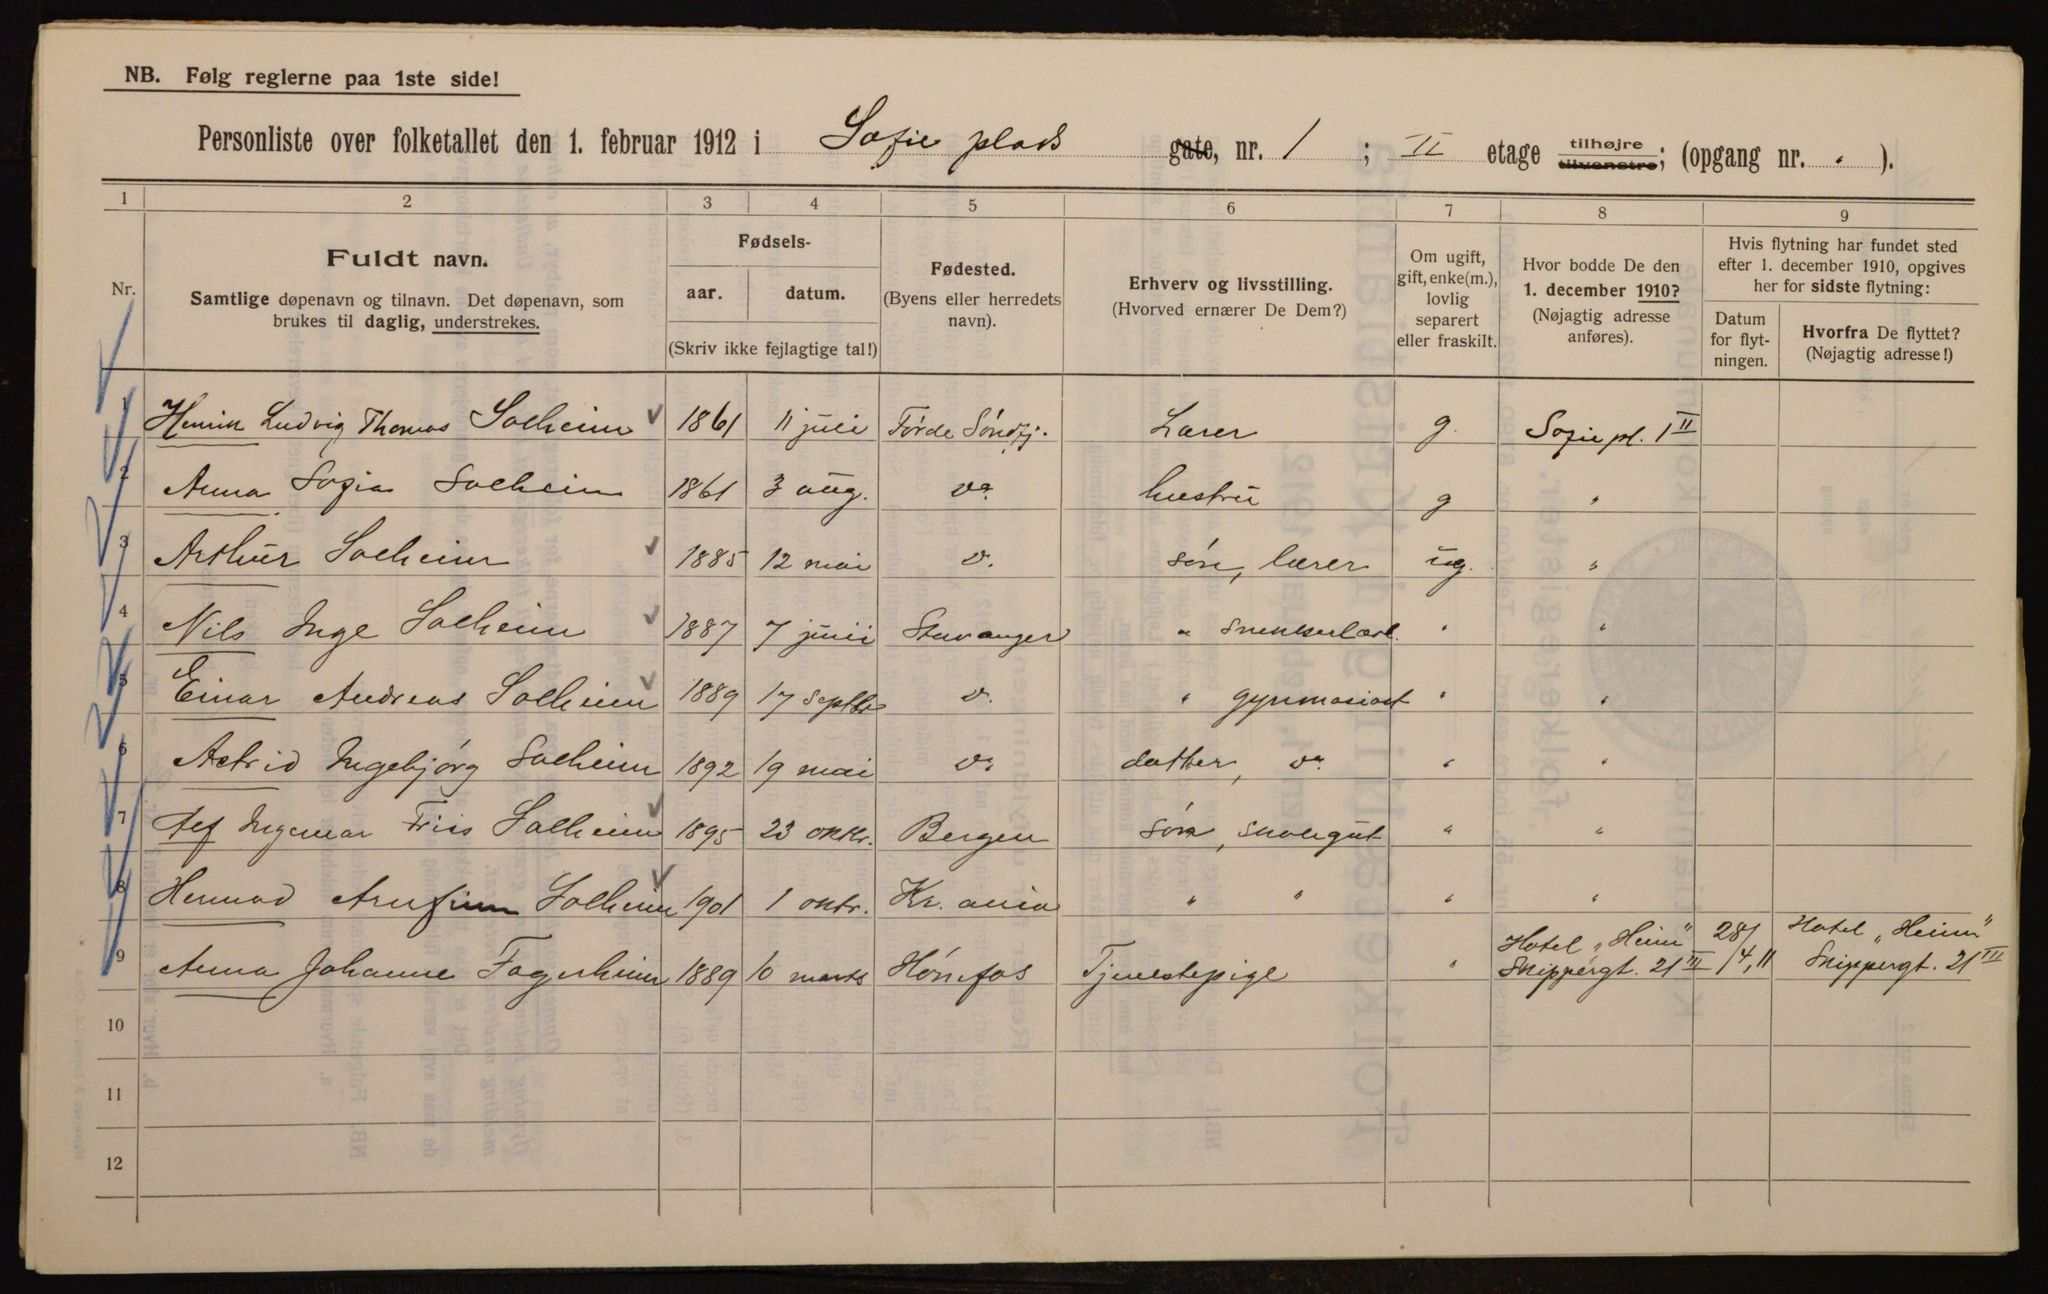 NB. Følg reglerne paa 1ste side!
Personliste over folketallet den 1. februar 1912 i Sofie plads gate, nr. 1 ; II etage tilhøjre tilvenstre; (opgang nr. " ).
1 2 3 4 5 6 7 8 9
Nr.
Fuldt navn.
Samtlige døpenavn og tilnavn. Det døpenavn, som
brukes til daglig, understrekes.
Fødsels-
aar. datum.
(Skriv ikke fejlagtige tal!)
Fødested.
(Byens eller herredets
navn).
Erhverv og livsstilling.
(Hvorved ernærer De Dem?)
Om ugift,
gift, enke(m.),
lovlig
separert
eller fraskilt.
Hvor bodde De den
1. december 1910?
(Nøjagtig adresse
anføres).
Hvis flytning har fundet sted
efter 1. december 1910, opgives
her for sidste flytning:
Datum
for flyt-
ningen.
Hvorfra De flyttet?
(Nøjagtig adresse!)
1 Henrik Ludvig Thomas Solheim 1861 11 juli Førde Søndfj. Lærer g. Sofie pl. 1 II
2 Anna Sofia Solheim 1861 3 aug. do. hustru g "
3 Arthur Solheim 1885 12 mai do. søn, lærer ug. "
4 Nils Inge Solheim 1887 7 juli Stavanger " snekkerlærl. " "
5 Einar Andreas Solheim 1889 17 septbr do. " gymnasiast " "
6 Astrid Ingebjørg Solheim 1892 19 mai do. datter, do. " "
7 Alf Ingemar Friis Solheim 1895 23 oktbr. Bergen søn, skolegut " "
8 Hermod Arnfinn Solheim 1901 1 oktr. Kr.ania " " " "
9 Anna Johanne Fagerheim 1889 10 marts Hønefos Tjenestepige " Hotel "Heim" Skippergt. 21 III 28/4, 11 Hotel "Heim" Skippergt. 21 III
10
11
12